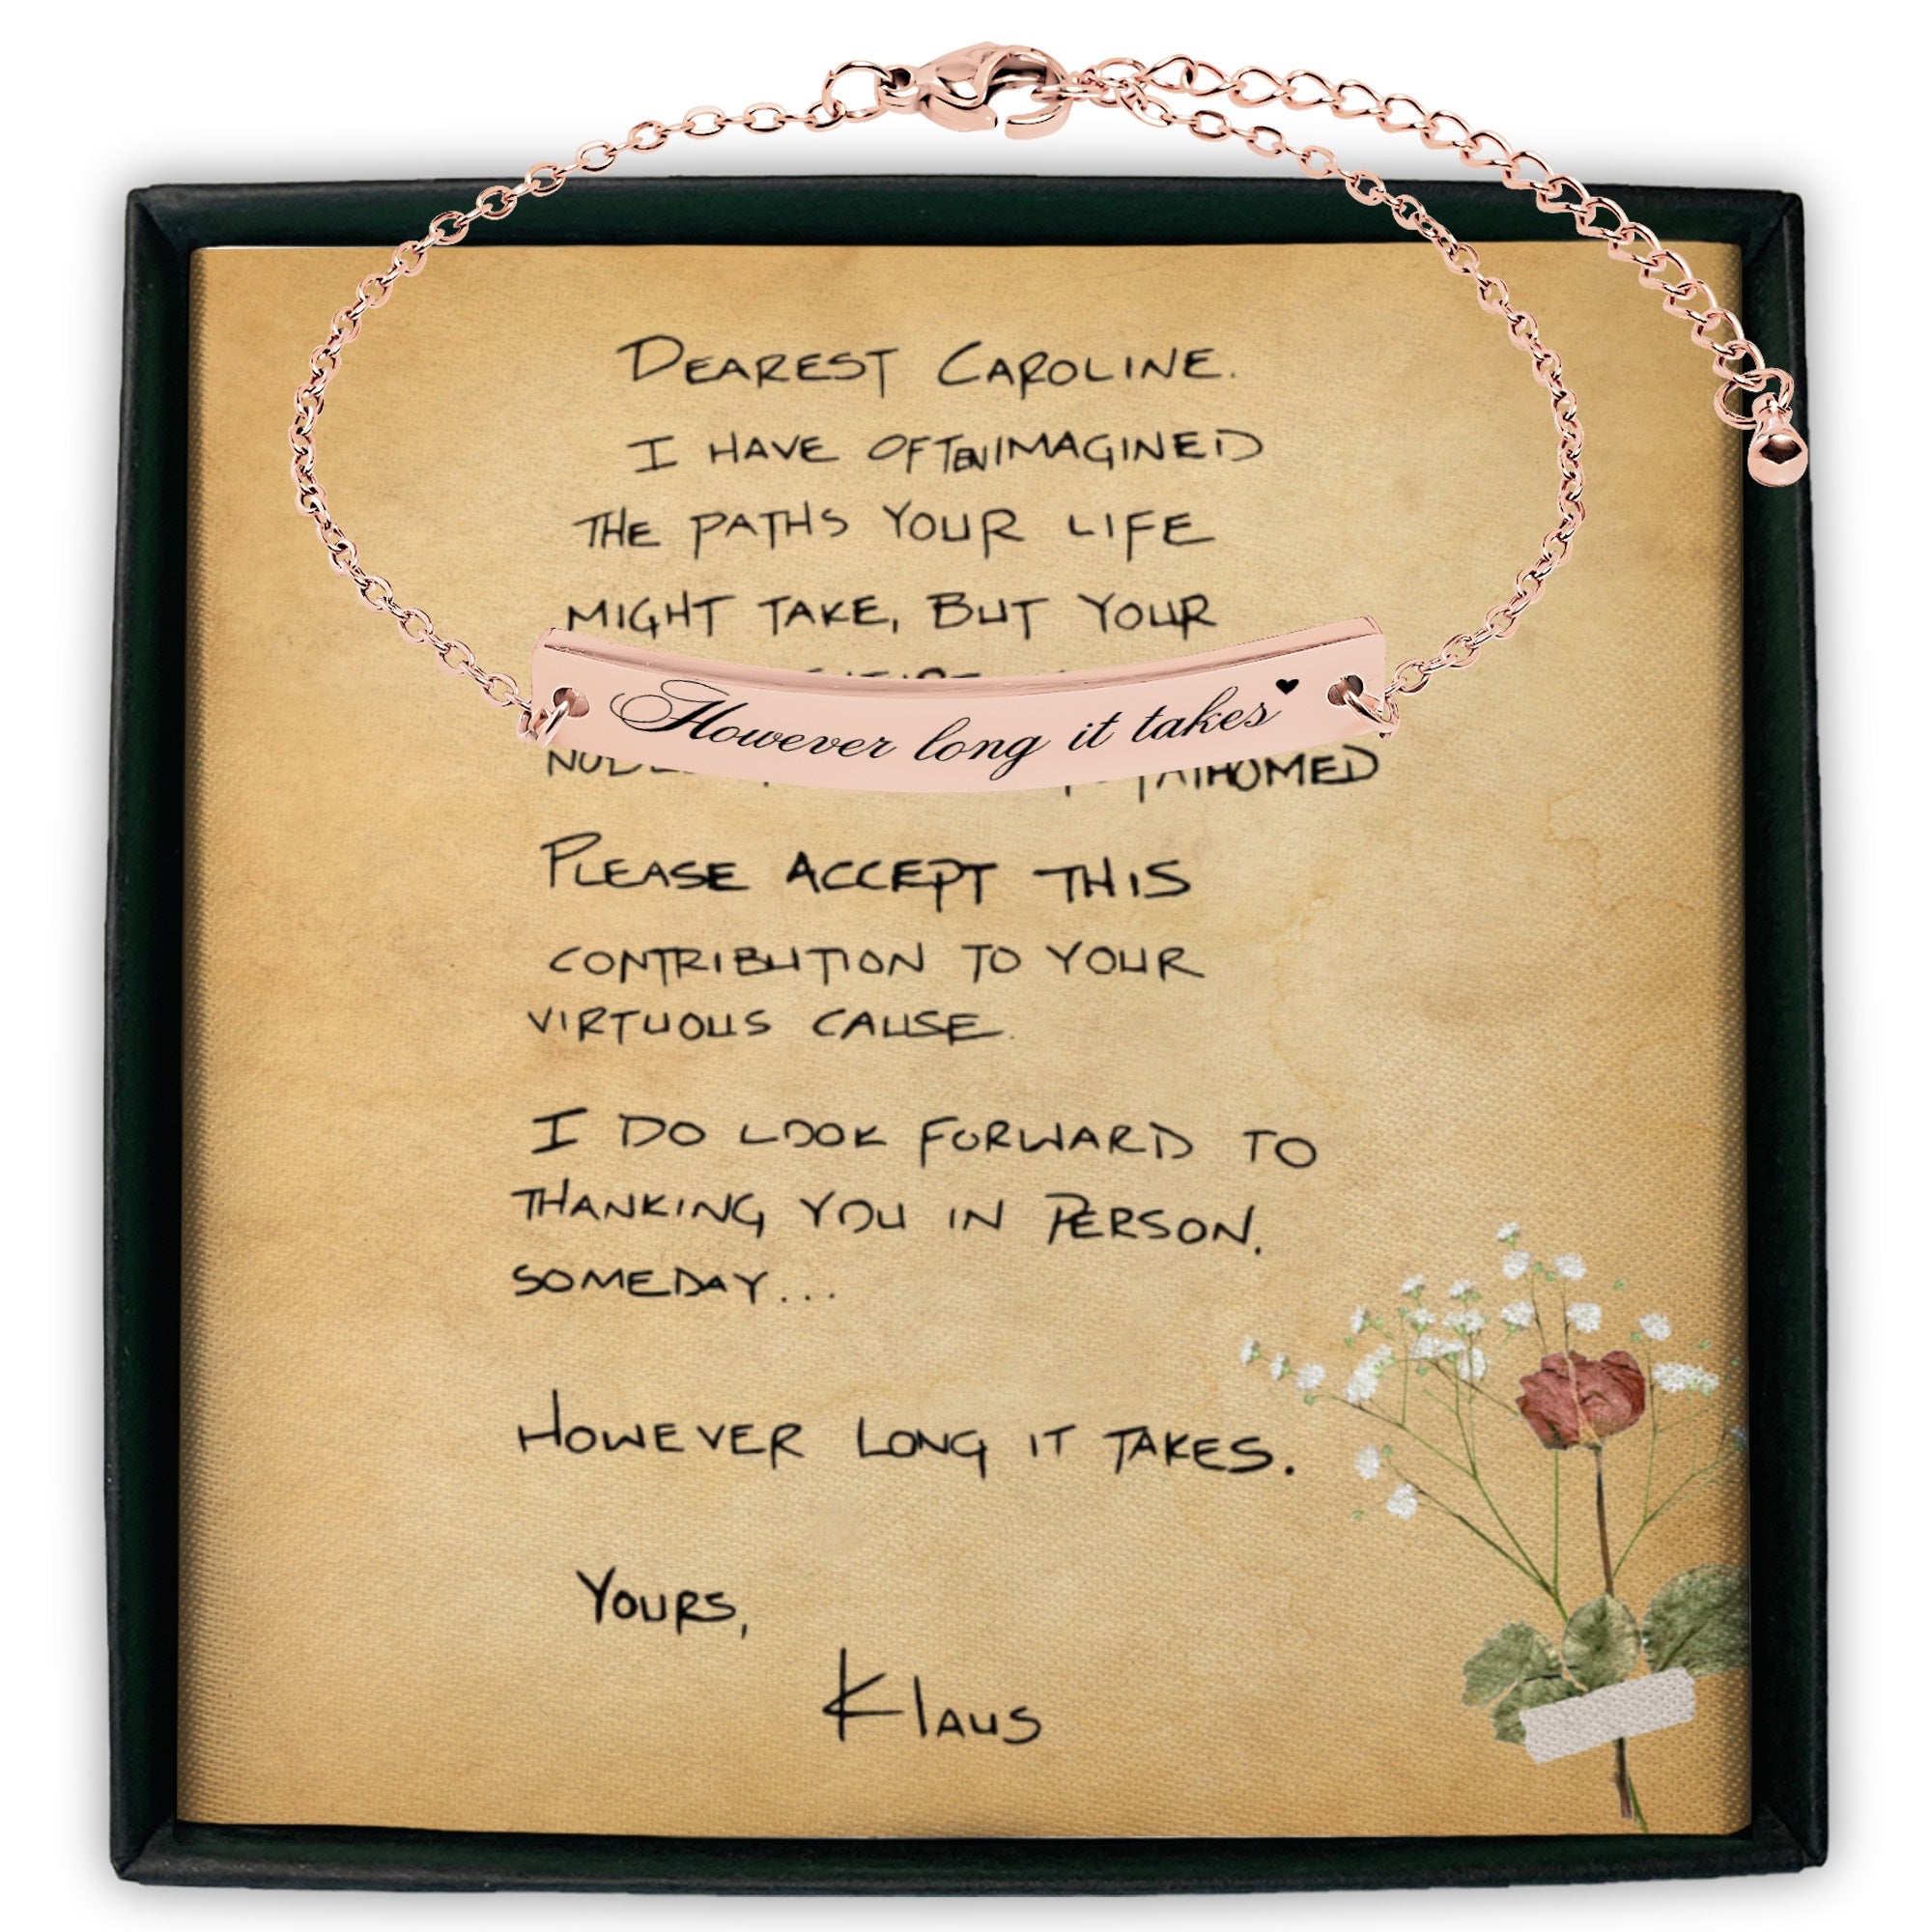 DEAREST CAROLINE.
I HAVE OFTEN IMAGINED
THE PATHS YOUR LIFE
MIGHT TAKE, BUT YOUR
However long it takes
PLEASE ACCEPT THIS
CONTRIBUTION TO YOUR
VIRTUOUS CAUSE.
I DO LOOK FORWARD TO
THANKING YOU IN PERSON,
SOMEDAY...
HOWEVER LONG IT TAKES.
YOURS,
KLAUS